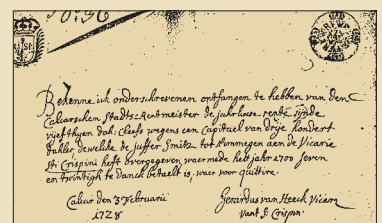 Bekenne ick onderschrevenen ontfangen te hebben van den
Calcarschen Stadts-Rentmeister de jahrlixe rente sijnde
vijefthyen dah: Cleefs wegens een Capitael van drije hondert
dahler dewelke de juffer Smitz tot Nimmegen aen de Vicarie
Sti Crispini heft overgegeven waer mede het jahr 1700 seven
en twintigh te danck betaelt is, waer voor quitire.
Calcar den 3 Februarii
1728
Gerardus van Heeck Vicari
vant St Crispin